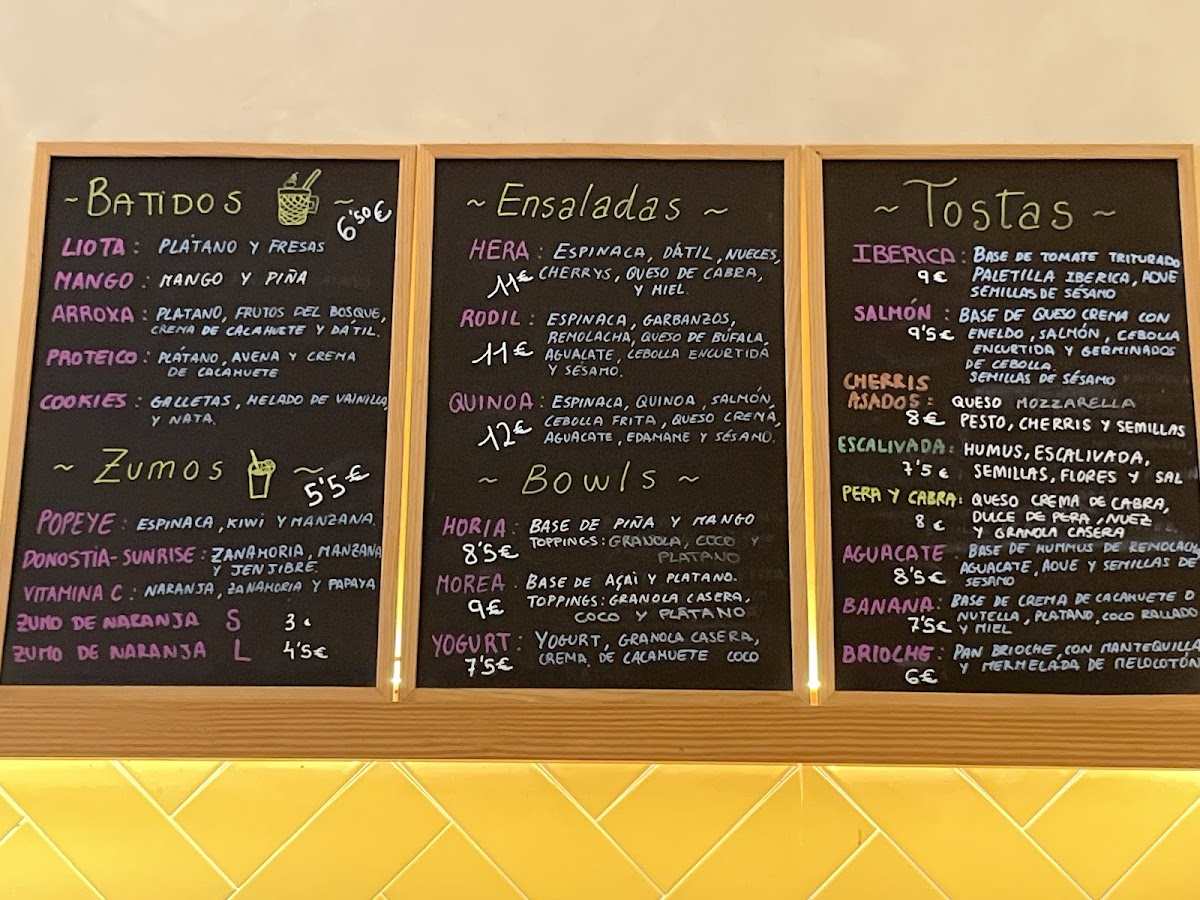 ~ BATIDOS ~
6'50€
LIOTA: PLÁTANO Y FRESAS
MANGO: MANGO Y PIÑA
ARROXA: PLATANO, FRUTOS DEL BOSQUE,
CREMA DE CACAHUETE Y DÁTIL.
PROTEICO: PLÁTANO, AVENA Y CREMA
DE CACAHUETE
COOKIES: GALLETAS, HELADO DE VAINILLA
Y NATA.
~ ZUMOS ~
5'5€
POPEYE: ESPINACA, KIWI Y MANZANA.
DONOSTIA-SUNRISE: ZANAHORIA, MANZANA
Y JENJIBRE.
VITAMINA C: NARANJA, ZANAHORIA Y PAPAYA
ZUMO DE NARANJA S 3€
ZUMO DE NARANJA L 4'5€
~ Ensaladas ~
HERA: ESPINACA, DÁTIL, NUECES,
11€ CHERRYS, QUESO DE CABRA,
Y MIEL.
RODIL: ESPINACA, GARBANZOS,
REMOLACHA, QUESO DE BÚFALA,
11€ AGUACATE, CEBOLLA ENCURTIDA
Y SÉSAMO.
QUINOA: ESPINACA, QUINOA, SALMÓN,
12€ CEBOLLA FRITA, QUESO CREMA,
AGUACATE, EDAMANE Y SÉSAMO.
~ BOWLS ~
HORIA: BASE DE PIÑA Y MANGO
8'5€ TOPPINGS: GRANOLA, COCO Y
PLATANO
MOREA: BASE DE AÇAI Y PLATANO.
9€ TOPPINGS: GRANOLA CASERA,
COCO Y PLÁTANO
YOGURT: YOGURT, GRANOLA CASERA,
7'5€ CREMA DE CACAHUETE COCO
~ Tostas ~
IBERICA: BASE DE TOMATE TRITURADO
9€ PALETILLA IBERICA, AOVE
SEMILLAS DE SÉSAMO
SALMÓN: BASE DE QUESO CREMA CON
9'5€ ENELDO, SALMÓN, CEBOLLA
ENCURTIDA Y GERMINADOS
DE CEBOLLA.
SEMILLAS DE SÉSAMO
CHERRIS
ASADOS: QUESO MOZZARELLA
8€ PESTO, CHERRIS Y SEMILLAS
ESCALIVADA: HUMUS, ESCALIVADA,
7'5€ SEMILLAS, FLORES Y SAL
PERA Y CABRA: QUESO CREMA DE CABRA,
8€ DULCE DE PERA, NUEZ
Y GRANOLA CASERA
AGUACATE BASE DE HUMMUS DE REMOLACH
8'5€ AGUACATE, AOVE Y SEMILLAS DE
SESAMO
BANANA: BASE DE CREMA DE CACAHUETE O
7'5€ NUTELLA, PLATANO, COCO RALLADO
Y MIEL
BRIOCHE: PAN BRIOCHE, CON MANTEQUILLA
6€ Y MERMELADA DE MELOCOTÓN